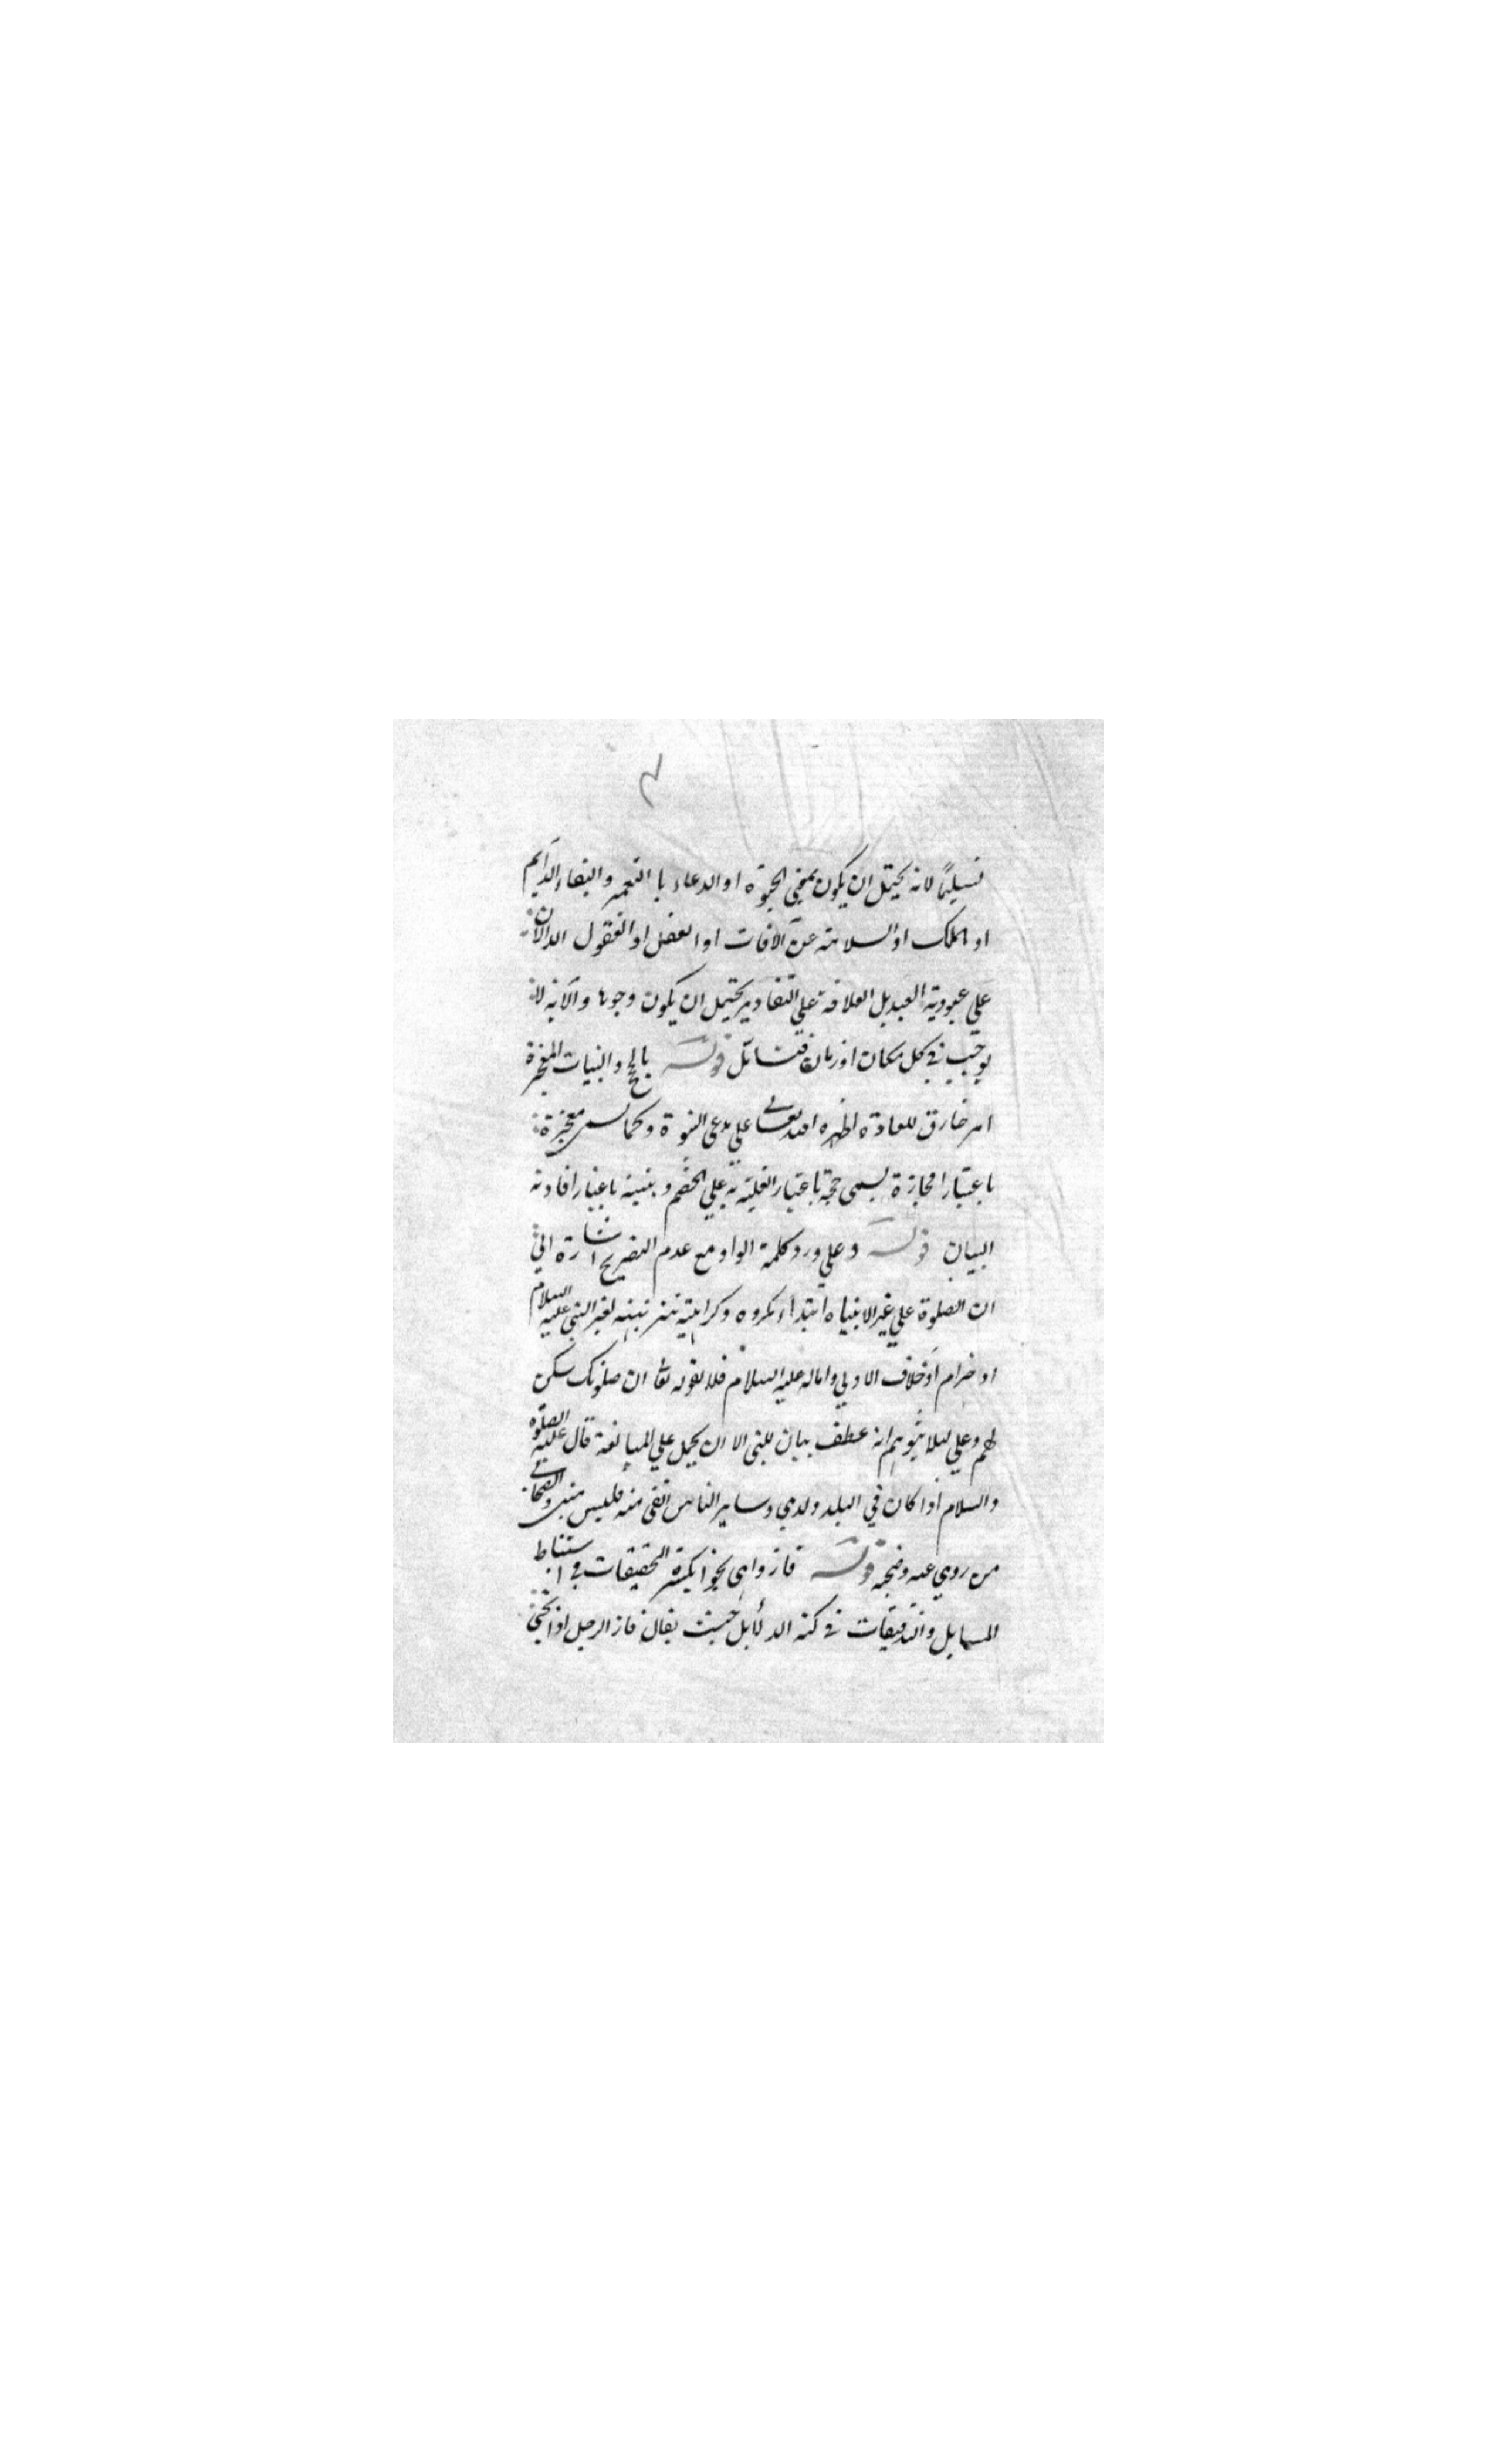 تسليمًا لانه يحتمل ان يكون بمعنى الحيوة او الدعاء با التعمير والبقاء الدايم
او الملك او السلامة عن الآفات او الفضل او العقول الدالان
على عبودية العبد بل العلاقة على التقادير يحتمل ان يكون وجوبا والآية لا
يوجب في كل مكان او زمان فتأمل قوله بالحج والبينات المعجزة
امر خارق للعادة اظهره الله تعالى على مدعى النبوة وكما يسمى معجزة
باعتبار اعجازه يسمى حجة باعتبار الغلبة به على الخصم وبينة باعتبار افادته
البيان قوله وعلى ورد كلمة الواو مع عدم التصريح اشارة الى
ان الصلوة على غير الانبياء ابتداء مكروه وكراهيته تنزيهية لغير النبى عليه السلام
او حرام او خلاف الاولى واماله عليه السلام فلا لقوله تعا ان صلوتك سكن
لهم وعلى ليلا يتوهم انه عطف بيان للنبى الا ان يحمل على المبالغة قال عليه الصلوة
والسلام اذا كان في البلد ولدي وساير الناس اتقى منه فليس منى والصحابى
من روى عنه وصحبه قوله فازوا اى نجوا بكثرة التحقيقات في استنباط
المسايل والتدقيقات في كنه الدلايل حيث يقال فاز الرجل اذا نجى